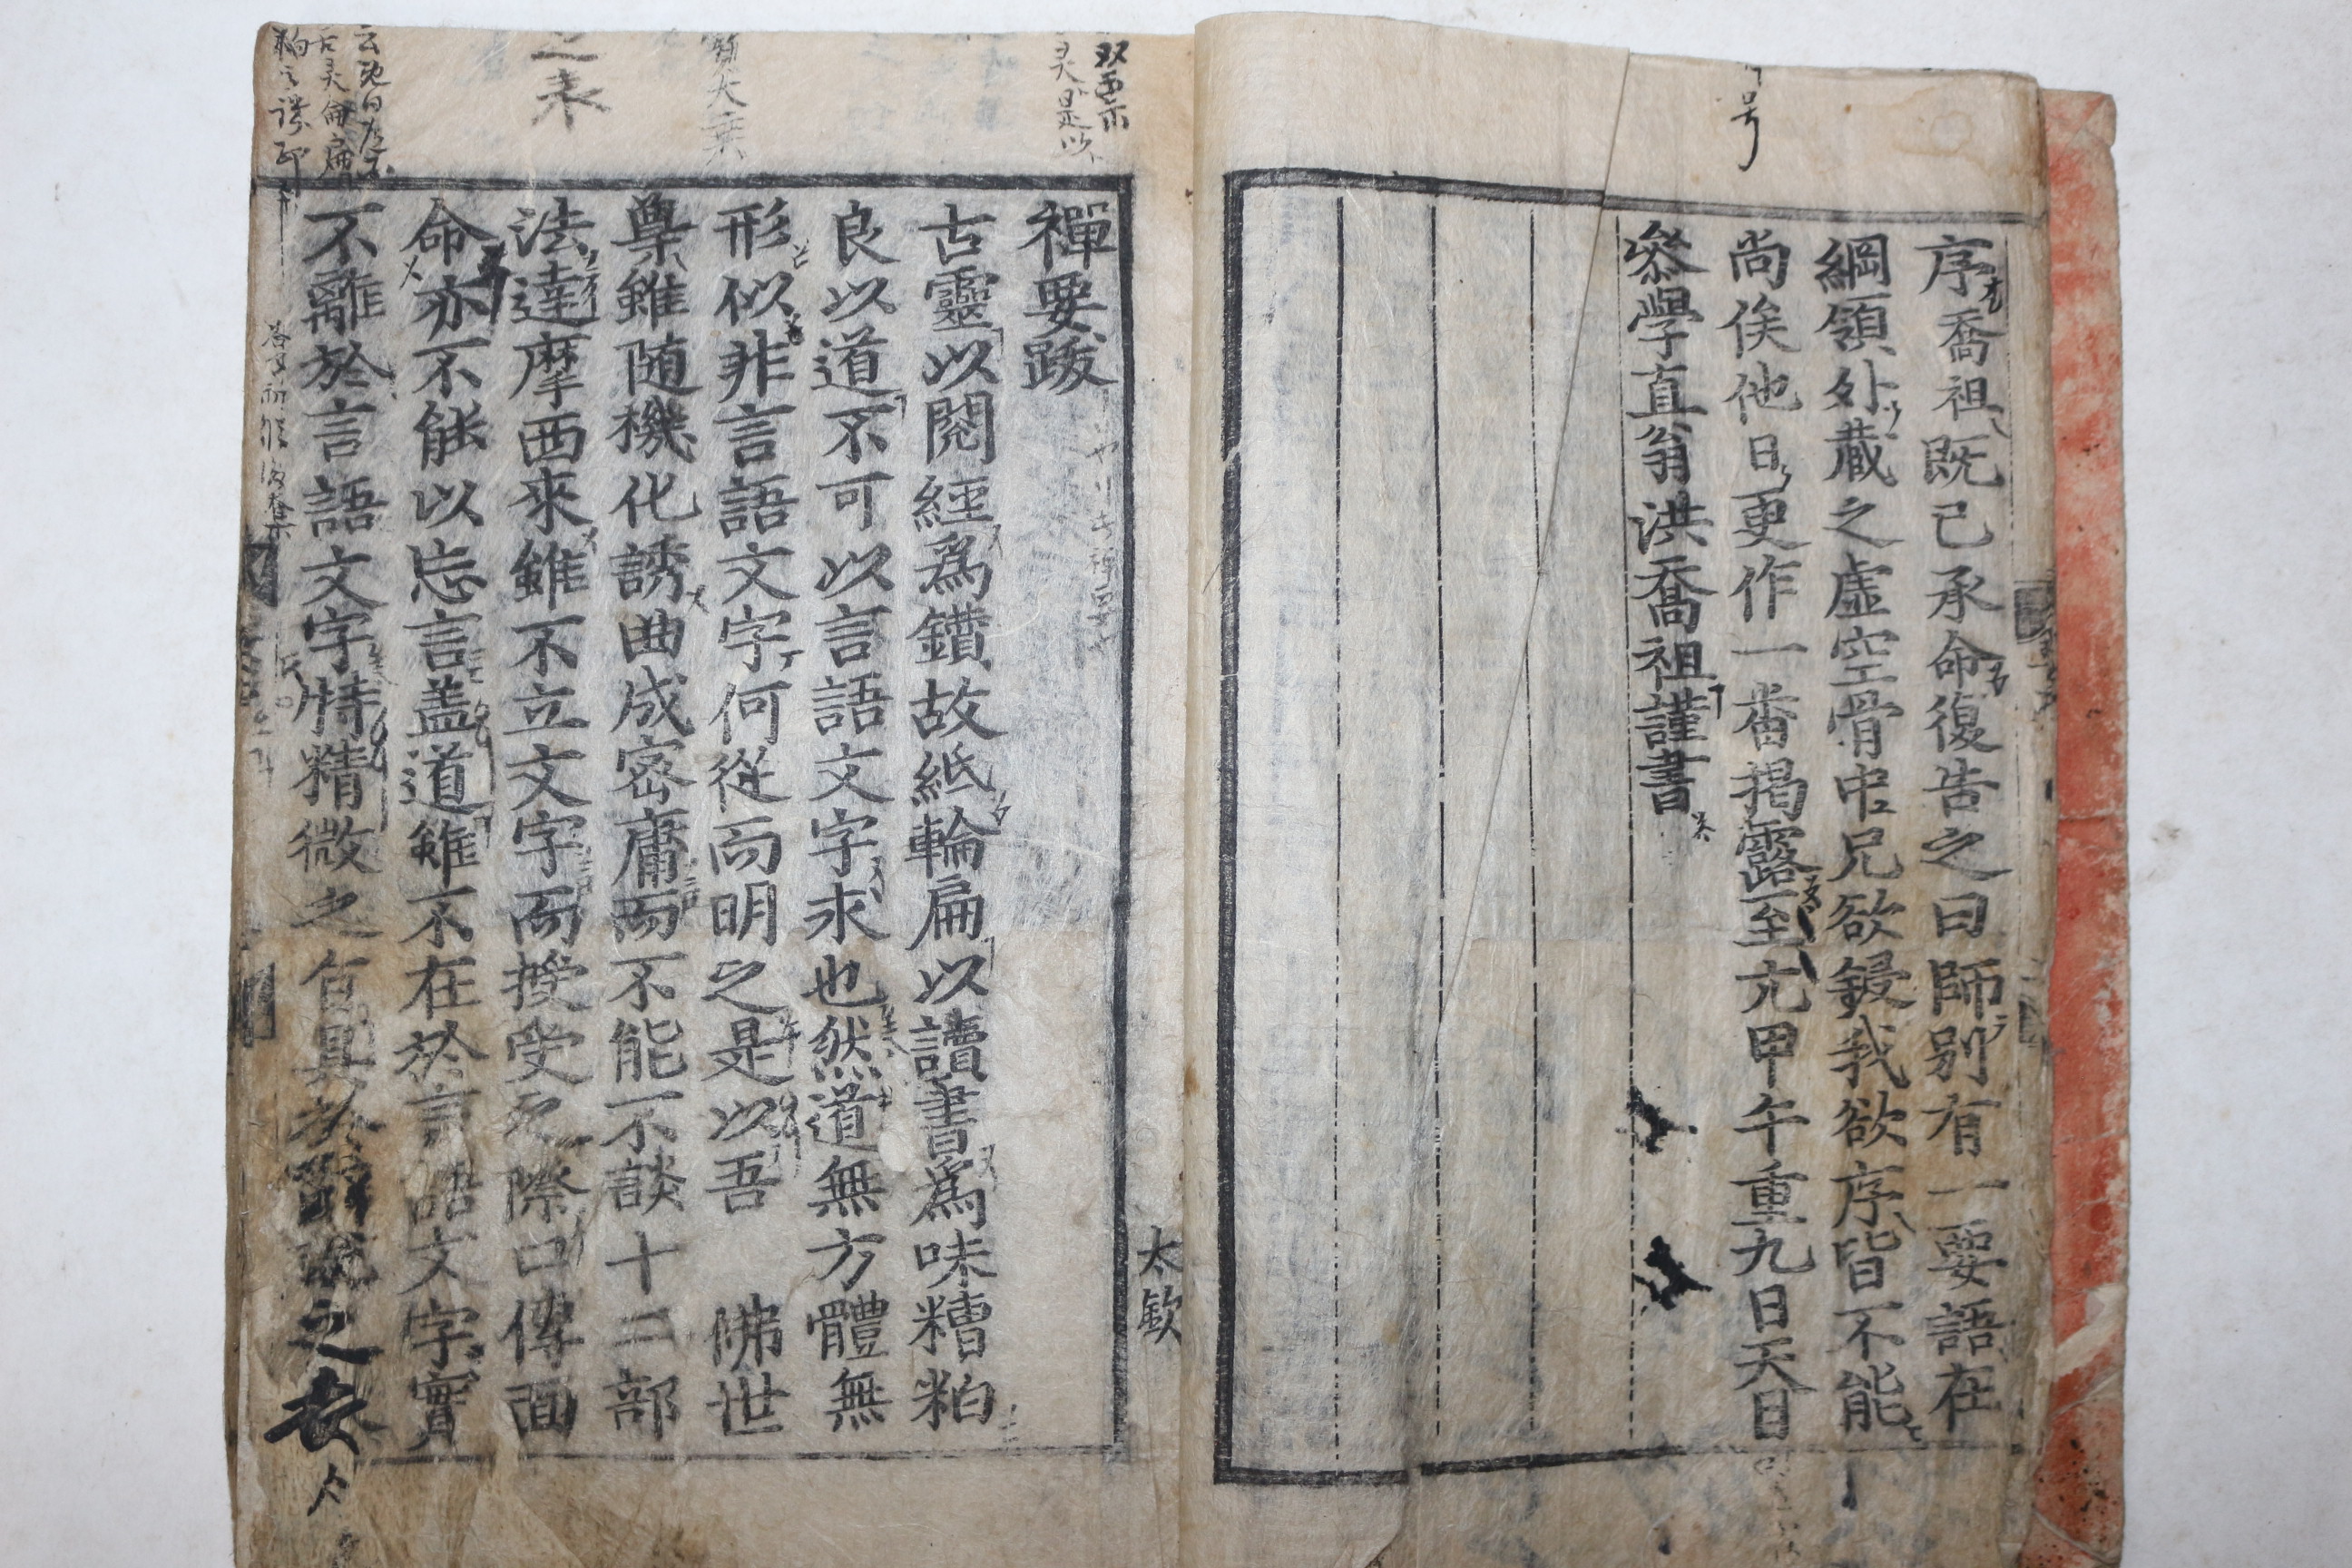 序喬祖既已承命復告之曰師別有一要語在
綱領外藏之虛空骨中兄欲鋟我欲序皆不能
尚俟他日更作一番揭露至元甲午重九日天目
叅學直翁洪喬祖謹書
禪要跋
古靈以閱經爲鑽故紙輪扁以讀書爲味糟粕
良以道不可以言語文字求也然道無方體無
形似非言語文字何從而明之是以吾佛世
雖随機化誘曲成密庸而不能不談十二部
法達摩西來雖不立文字而授受之際口傳面
命亦不能以忘言盖道雖不在於言語文字實
不離於言語文字特精微之旨具於之表
太欽
之表
号
大乗